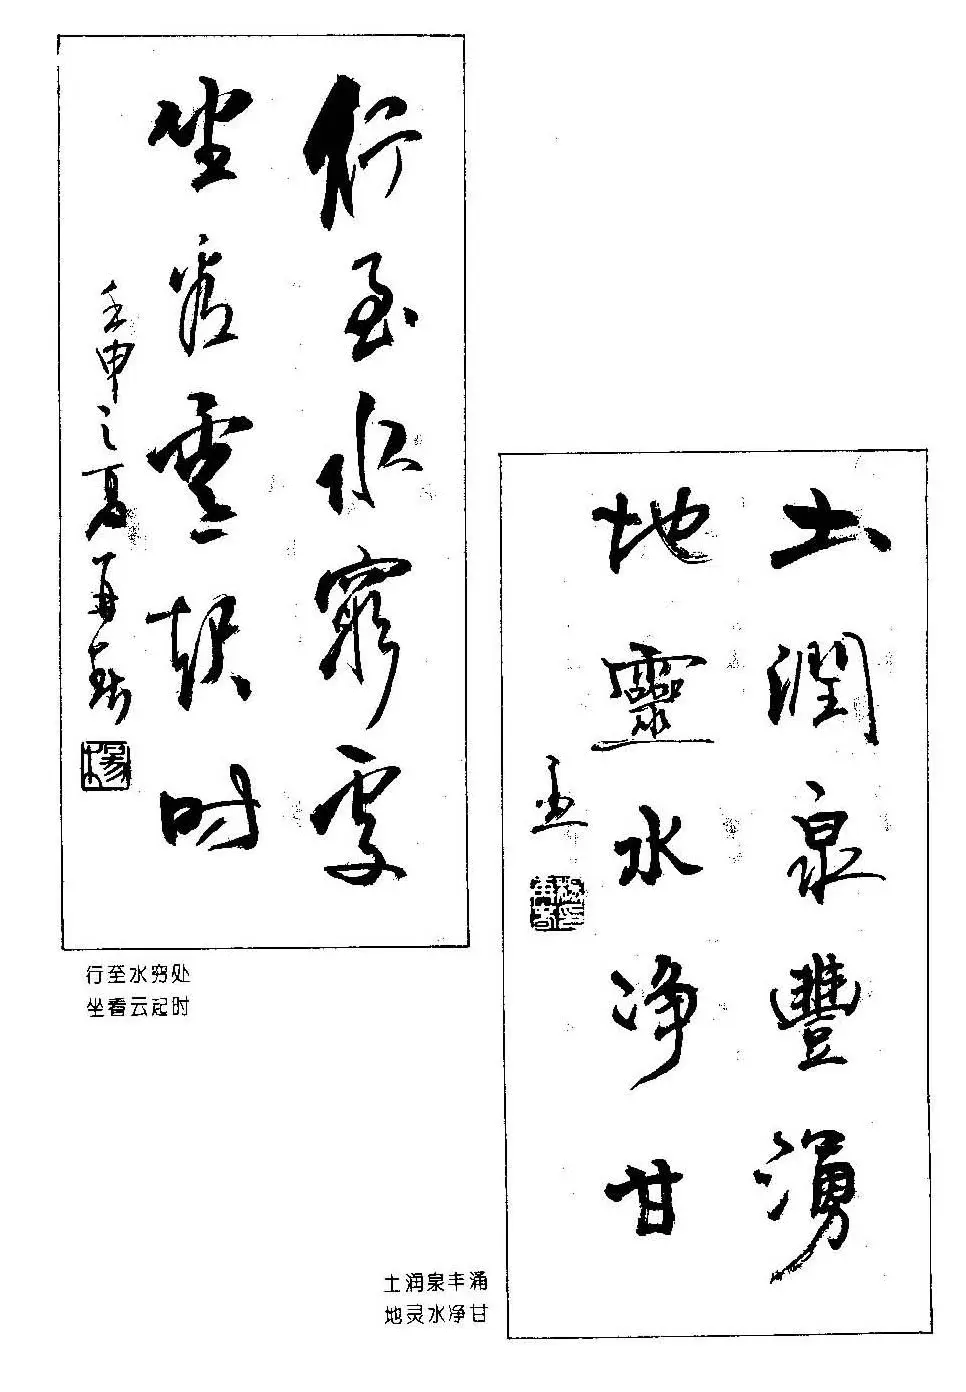 行至水窮處
坐看雲起時
壬申之夏再新
楊
行至水穷处
坐看云起时
土潤泉豐湧
地靈水净甘
土润泉丰涌
地灵水净甘